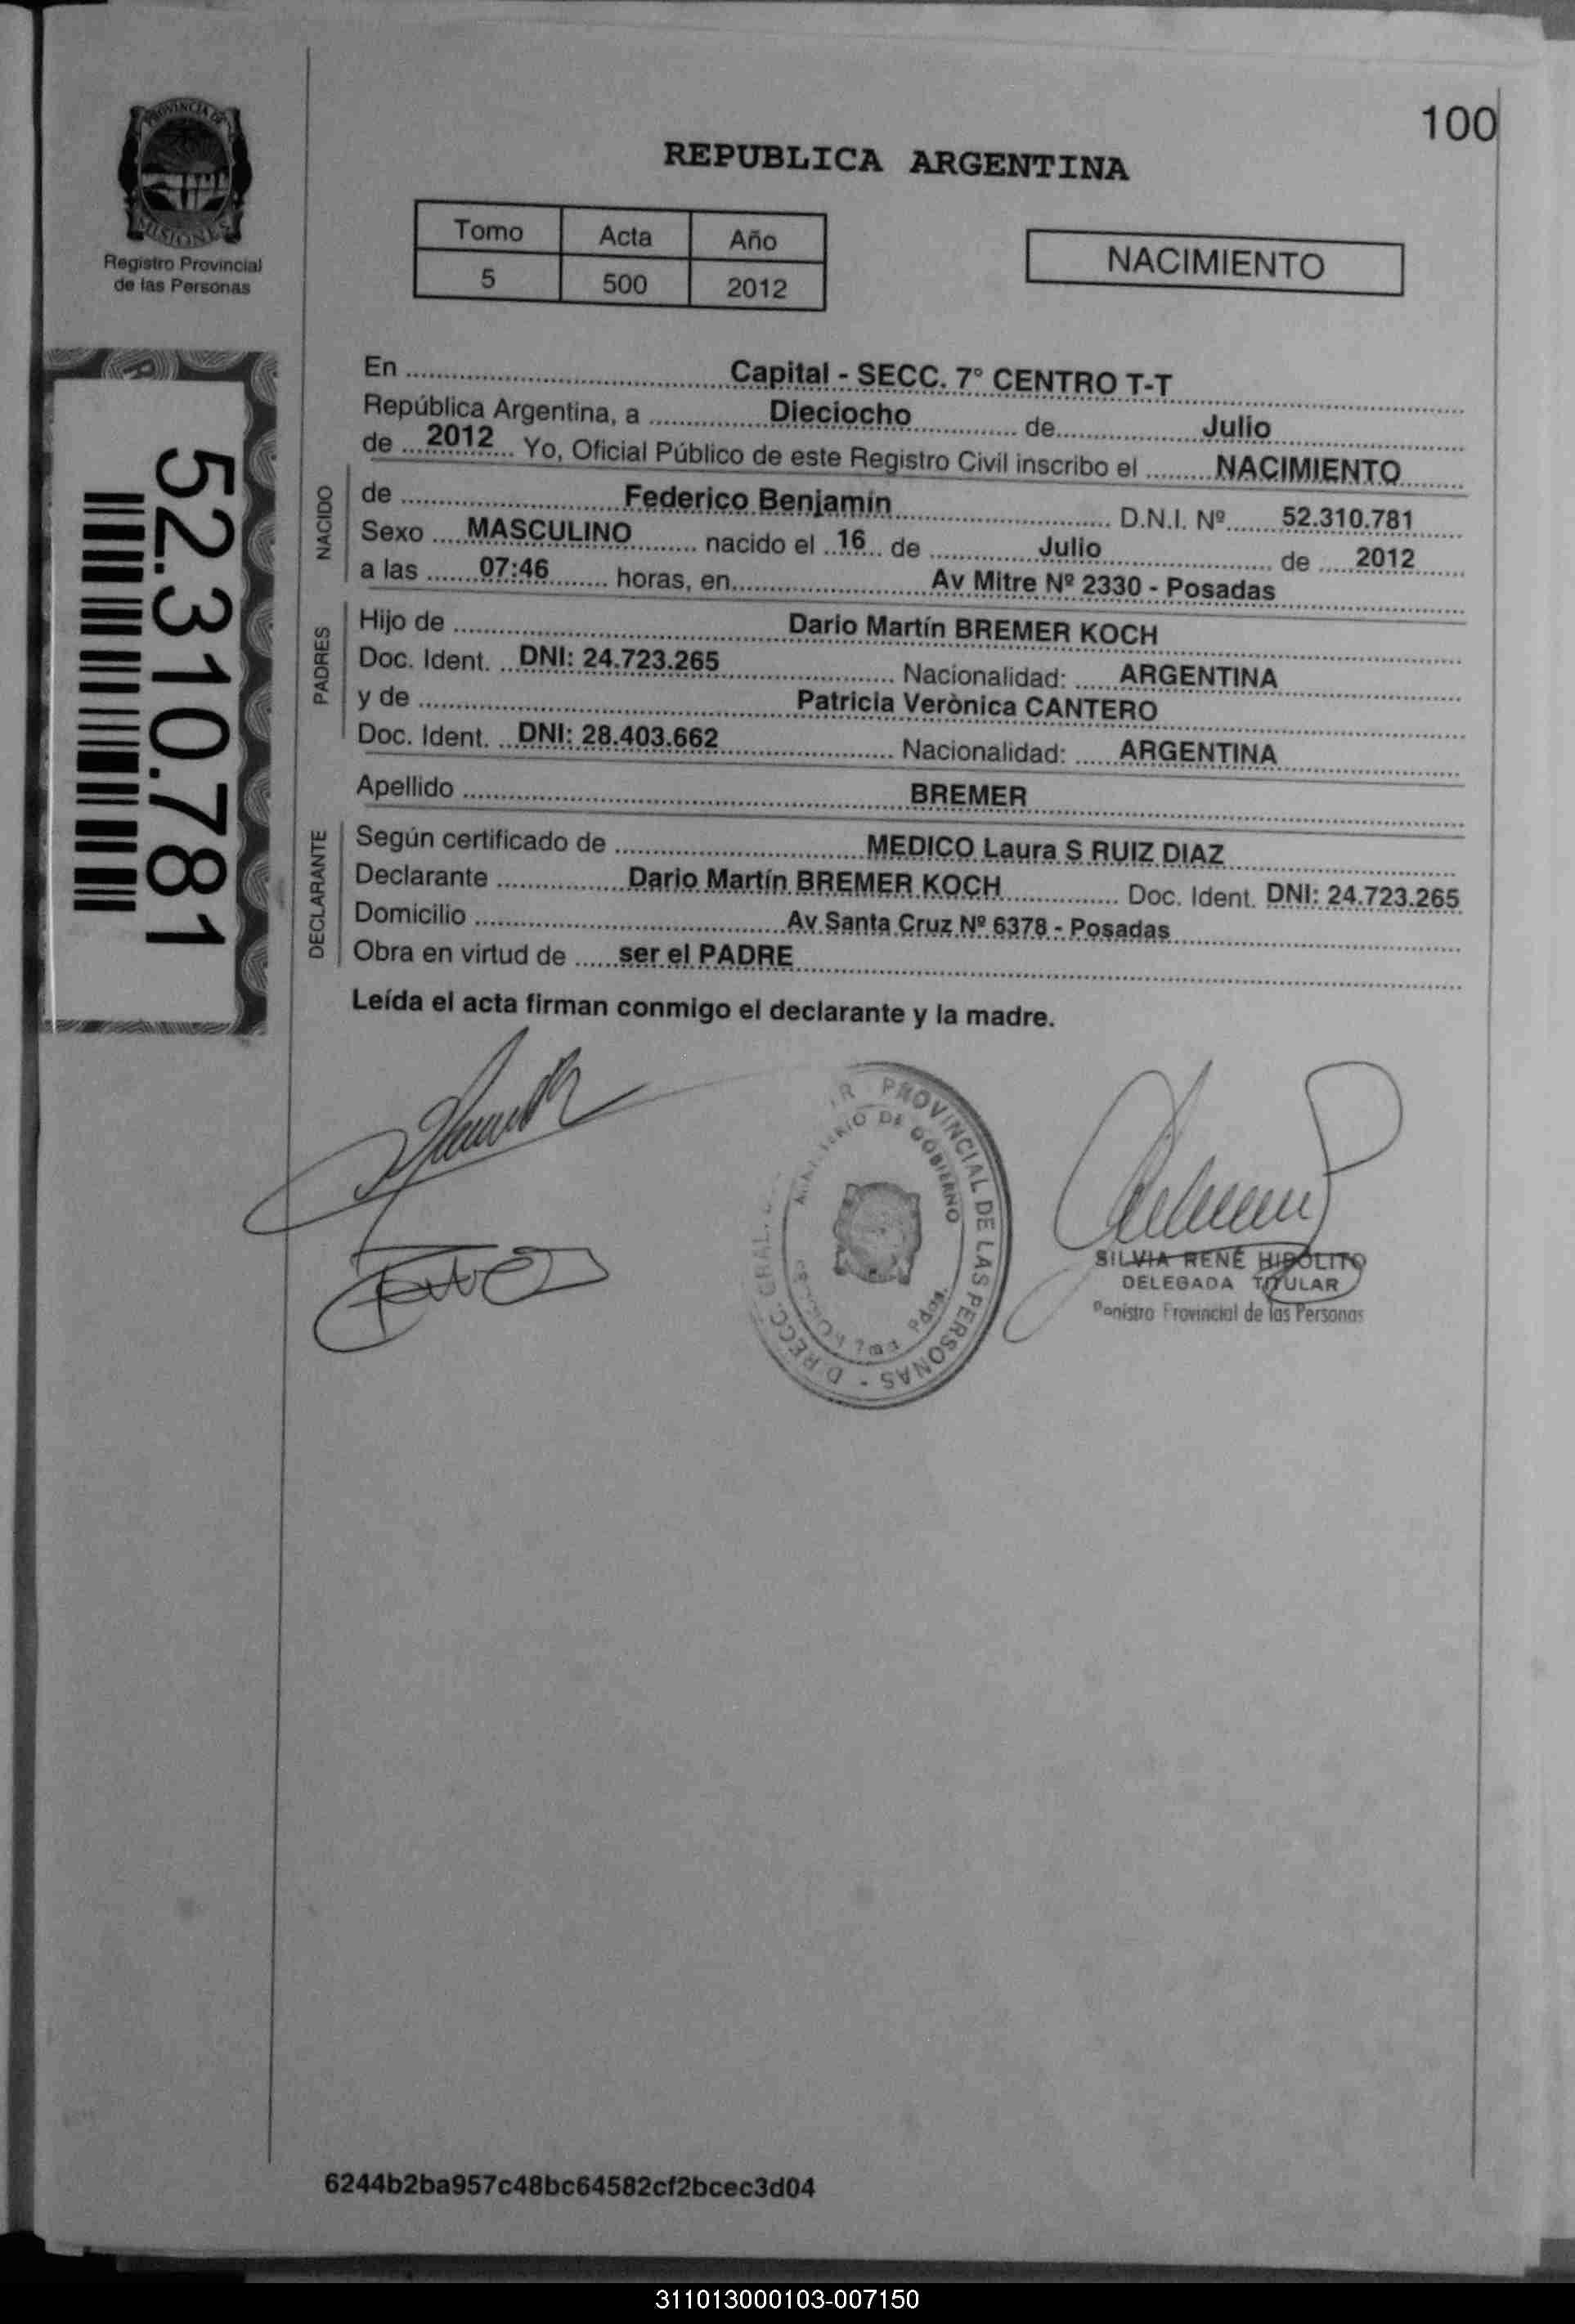 100
PROVINCIA DE
MISIONES
Registro Provincial
de las Personas
REPUBLICA ARGENTINA
Tomo Acta Año
5 500 2012
NACIMIENTO
52.310.781
En Capital - SECC. 7° CENTRO T-T
República Argentina, a Dieciocho de Julio
de 2012 Yo, Oficial Público de este Registro Civil inscribo el NACIMIENTO
NACIDO
de Federico Benjamín D.N.I. Nº 52.310.781
Sexo MASCULINO nacido el 16 de Julio de 2012
a las 07:46 horas, en Av Mitre Nº 2330 - Posadas
PADRES
Hijo de Dario Martín BREMER KOCH
Doc. Ident. DNI: 24.723.265 Nacionalidad: ARGENTINA
y de Patricia Verònica CANTERO
Doc. Ident. DNI: 28.403.662 Nacionalidad: ARGENTINA
Apellido BREMER
DECLARANTE
Según certificado de MEDICO Laura S RUIZ DIAZ
Declarante Dario Martín BREMER KOCH Doc. Ident. DNI: 24.723.265
Domicilio Av Santa Cruz Nº 6378 - Posadas
Obra en virtud de ser el PADRE
Leída el acta firman conmigo el declarante y la madre.
PROVINCIAL DE LAS PERSONAS -
DE GOBIERNO
SILVIA RENÉ HIPÓLITO
DELEGADA TITULAR
Provincial de las Personas
6244b2ba957c48bc64582cf2bcec3d04
311013000103-007150